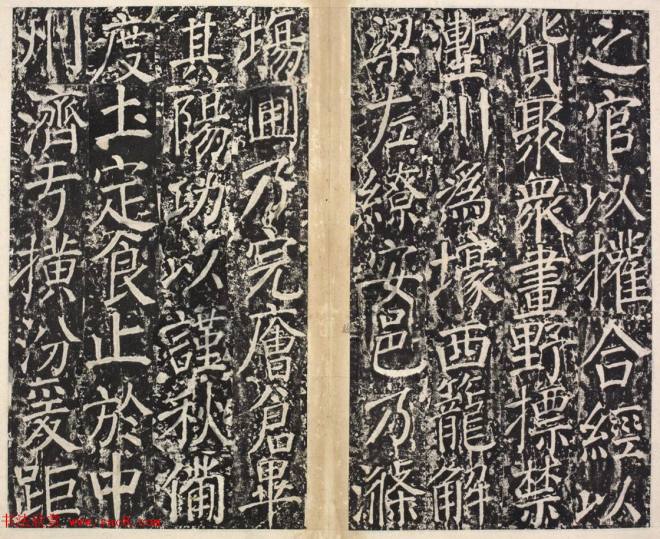 之官以搉合經以
貨聚衆畫野標禁
壍川爲壕西籠解
梁左繚安邑乃滌
場圃乃完廥倉畢
其陽功以謹秋備
度土定食止於中
州濟于橫汾爰距